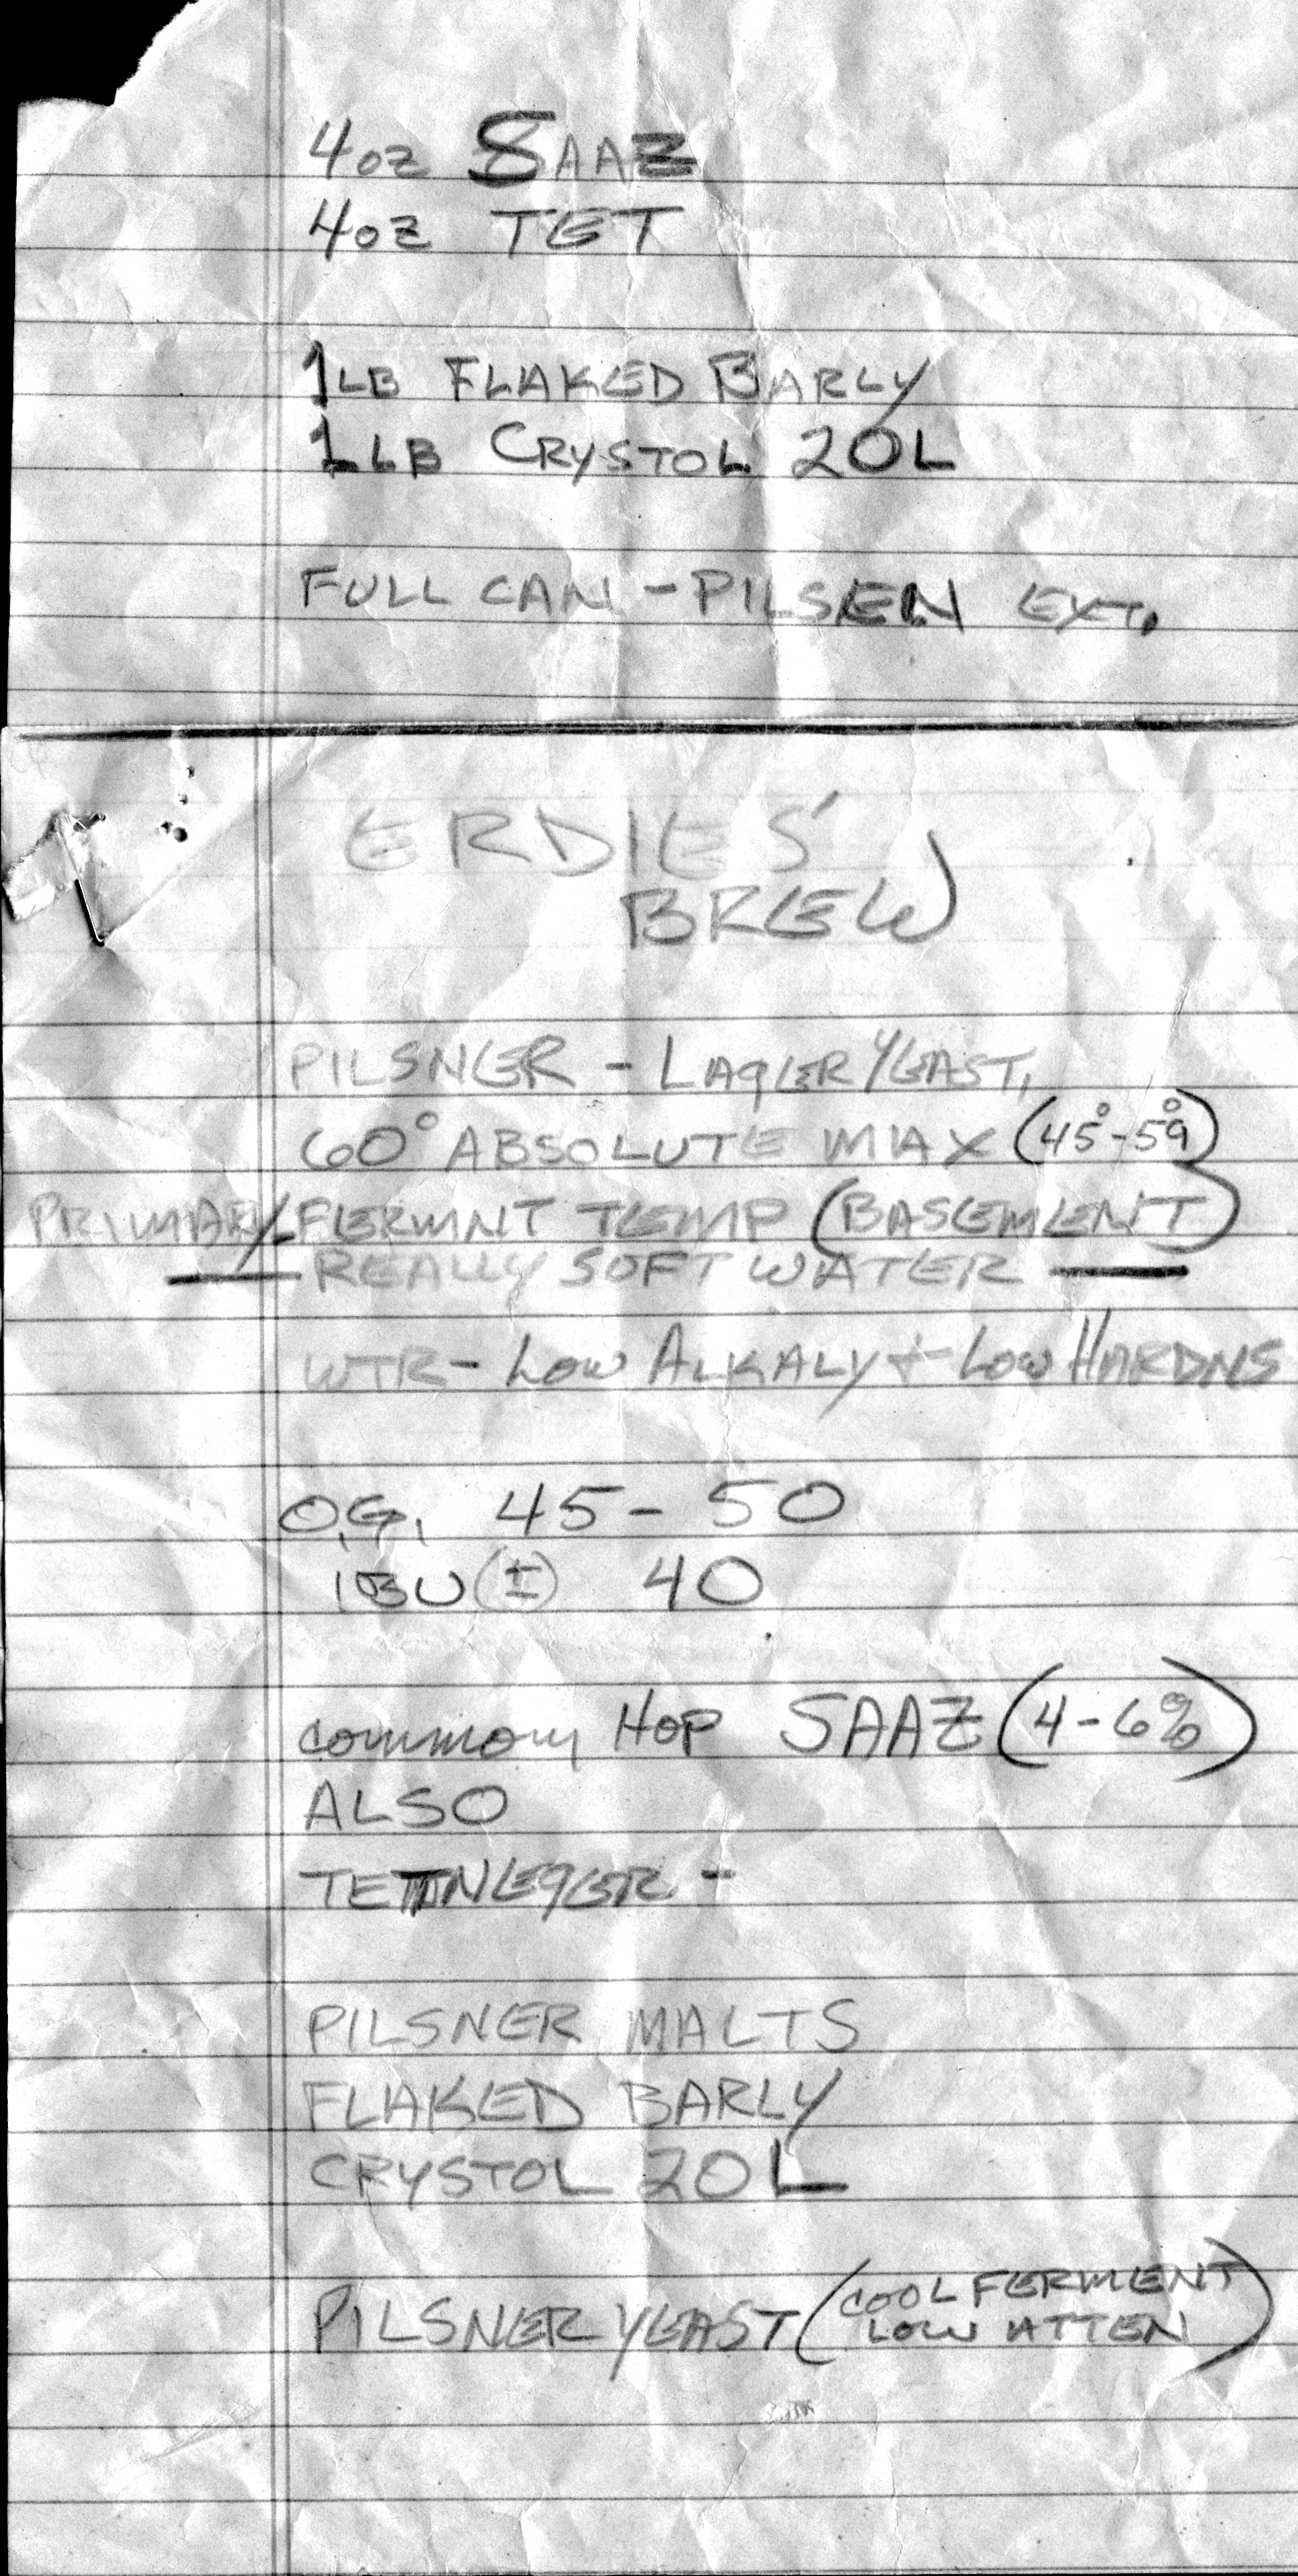 4oz SAAZ
4oz TET
1LB FLAKED BARLY
1LB CRYSTOL 20L
FULL CAN - PILSEN EXT.
ERDIES'
BREW
PILSNER - LAgER YEAST,
60° ABSOLUTE MAX (45°-59°)
PRIMARY FERMNT TEMP (BASEMENT)
— REALLY SOFT WATER —
WTR - LOW ALKALY + LOW HARDNS
O.G. 45 - 50
IBU (±) 40
common HOP SAAZ (4-6%)
ALSO
TETTNEgER -
PILSNER MALTS
FLAKED BARLY
CRYSTOL 20L
PILSNER YEAST (COOL FERMENT
LOW ATTEN)